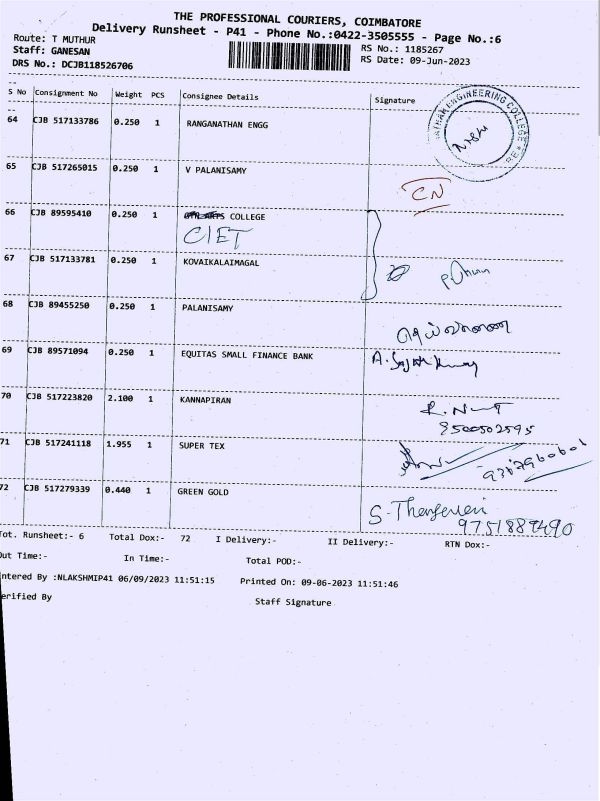 THE PROFESSIONAL COURIERS, COIMBATORE
Delivery Runsheet - P41 - Phone No.:0422-3505555 - Page No.:6
Route: T MUTHUR
RS No.: 1185267
Staff: GANESAN
RS Date: 09-Jun-2023
DRS No.: DCJB118526706
S No Consignment No Weight PCS Consignee Details Signature
64 CJB 517133786 0.250 1 RANGANATHAN ENGG
ENGINEERING COLLEGE
65 CJB 517265015 0.250 1 V PALANISAMY
CN
66 CJB 89595410 0.250 1 COLLEGE
CIET
67 CJB 517133781 0.250 1 KOVAIKALAIMAGAL
68 CJB 89455250 0.250 1 PALANISAMY
69 CJB 89571094 0.250 1 EQUITAS SMALL FINANCE BANK
70 CJB 517223820 2.100 1 KANNAPIRAN
9500502595
71 CJB 517241118 1.955 1 SUPER TEX
72 CJB 517279339 0.440 1 GREEN GOLD
9751889490
Tot. Runsheet:- 6 Total Dox:- 72 I Delivery:- II Delivery:- RTN Dox:-
Out Time:- In Time:- Total POD:-
ntered By :NLAKSHMIP41 06/09/2023 11:51:15 Printed On: 09-06-2023 11:51:46
erified By Staff Signature